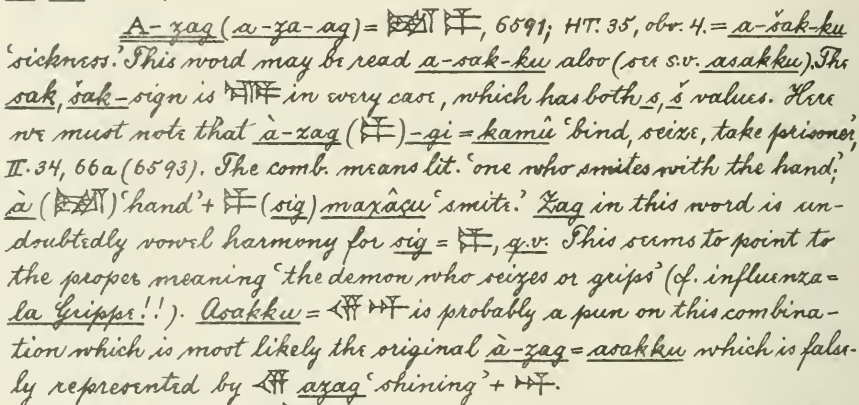 A-zag (a-za-ag) = 𒀉 𒉺, 6591; HT. 35, obv. 4. = a-šak-ku
'sickness.' This word may be read a-sak-ku also (see s.v. asakku). The
sak, šak-sign is in every case, which has both s, š values. Here
we must note that à-zag (𒉺)-gi = kamû 'bind, seize, take prisoner,'
II. 34, 66a (6593). The comb. means lit. 'one who smites with the hand;'
à (𒀉) 'hand' + 𒉺 (sig) maxâçu 'smite.' Zag in this word is un-
doubtedly vowel harmony for sig = 𒉺, q.v. This seems to point to
the proper meaning 'the demon who seizes or grips' (cf. influenza =
la Grippe!!). Asakku = 𒀭 is probably a pun on this combina-
tion which is most likely the original à-zag = asakku which is false-
ly represented by azag 'shining' +